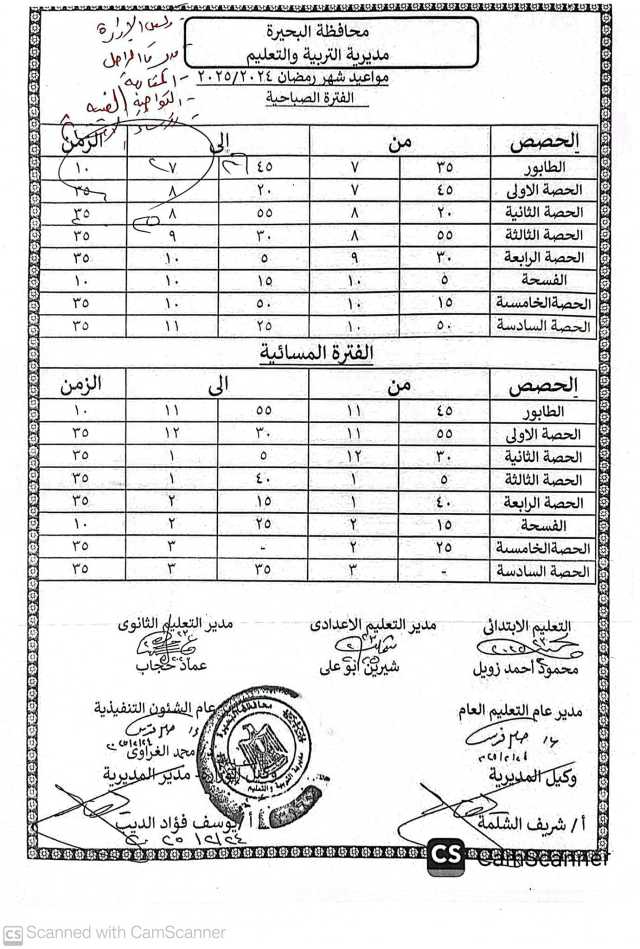 محافظة البحيرة
مديرية التربية والتعليم
مواعيد شهر رمضان ٢٠٢٥/٢٠٢٤
الفترة الصباحية
الحصص من الى الزمن
الطابور ٣٥ ٧ ٤٥ ٧ ١٠
الحصة الاولى ٤٥ ٧ ٢٠ ٨ ٣٥
الحصة الثانية ٢٠ ٨ ٥٥ ٨ ٣٥
الحصة الثالثة ٥٥ ٨ ٣٠ ٩ ٣٥
الحصة الرابعة ٣٠ ٩ ٥ ١٠ ٣٥
الفسحة ٥ ١٠ ١٥ ١٠ ١٠
الحصة الخامسة ١٥ ١٠ ٥٠ ١٠ ٣٥
الحصة السادسة ٥٠ ١٠ ٢٥ ١١ ٣٥
الفترة المسائية
الحصص من الى الزمن
الطابور ٤٥ ١١ ٥٥ ١١ ١٠
الحصة الاولى ٥٥ ١١ ٣٠ ١٢ ٣٥
الحصة الثانية ٣٠ ١٢ ٥ ١ ٣٥
الحصة الثالثة ٥ ١ ٤٠ ١ ٣٥
الحصة الرابعة ٤٠ ١ ١٥ ٢ ٣٥
الفسحة ١٥ ٢ ٢٥ ٢ ١٠
الحصة الخامسة ٢٥ ٢ - ٣ ٣٥
الحصة السادسة - ٣ ٣٥ ٣ ٣٥
التعليم الابتدائى مدير التعليم الاعدادى مدير التعليم الثانوى
محمود أحمد زويل شيرين أبو على عماد حجاب
مدير عام التعليم العام عام الشئون التنفيذية
محمد الغراوى
وكيل المديرية وكيل الوزارة - مدير المديرية
أ/ شريف الشلمة أ/ يوسف فؤاد الديب
محافظة البحيرة
مديرية التربية والتعليم
CS CamScanner
CS Scanned with CamScanner